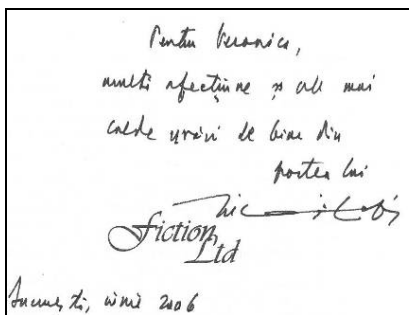 Pentru Veronica,
multă afecțiune și cele mai
calde urări de bine din
partea lui
Fiction, Ltd
București, iunie 2006